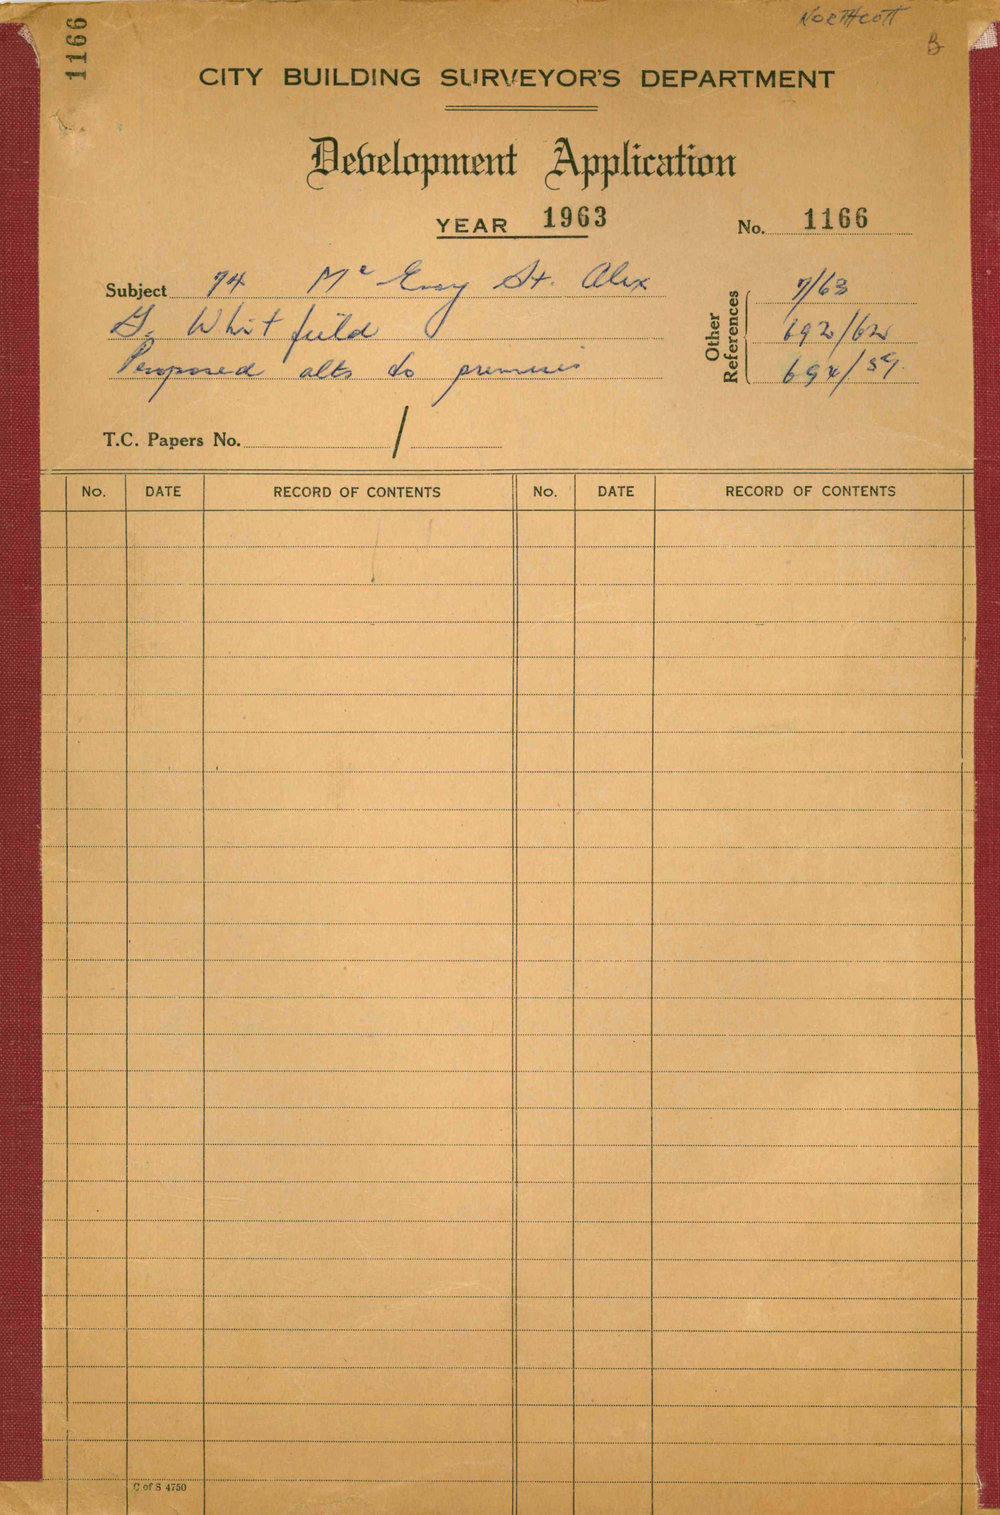 1166
NORTHCOTT
B
CITY BUILDING SURVEYOR'S DEPARTMENT
Development Application
YEAR 1963
No. 1166
Subject 74 Mc Evoy St. Alex
G. Whitfield
Proposed alts to premises
Other References
7/63
692/62
694/59
T.C. Papers No. /
No. DATE RECORD OF CONTENTS No. DATE RECORD OF CONTENTS
C of S 4750